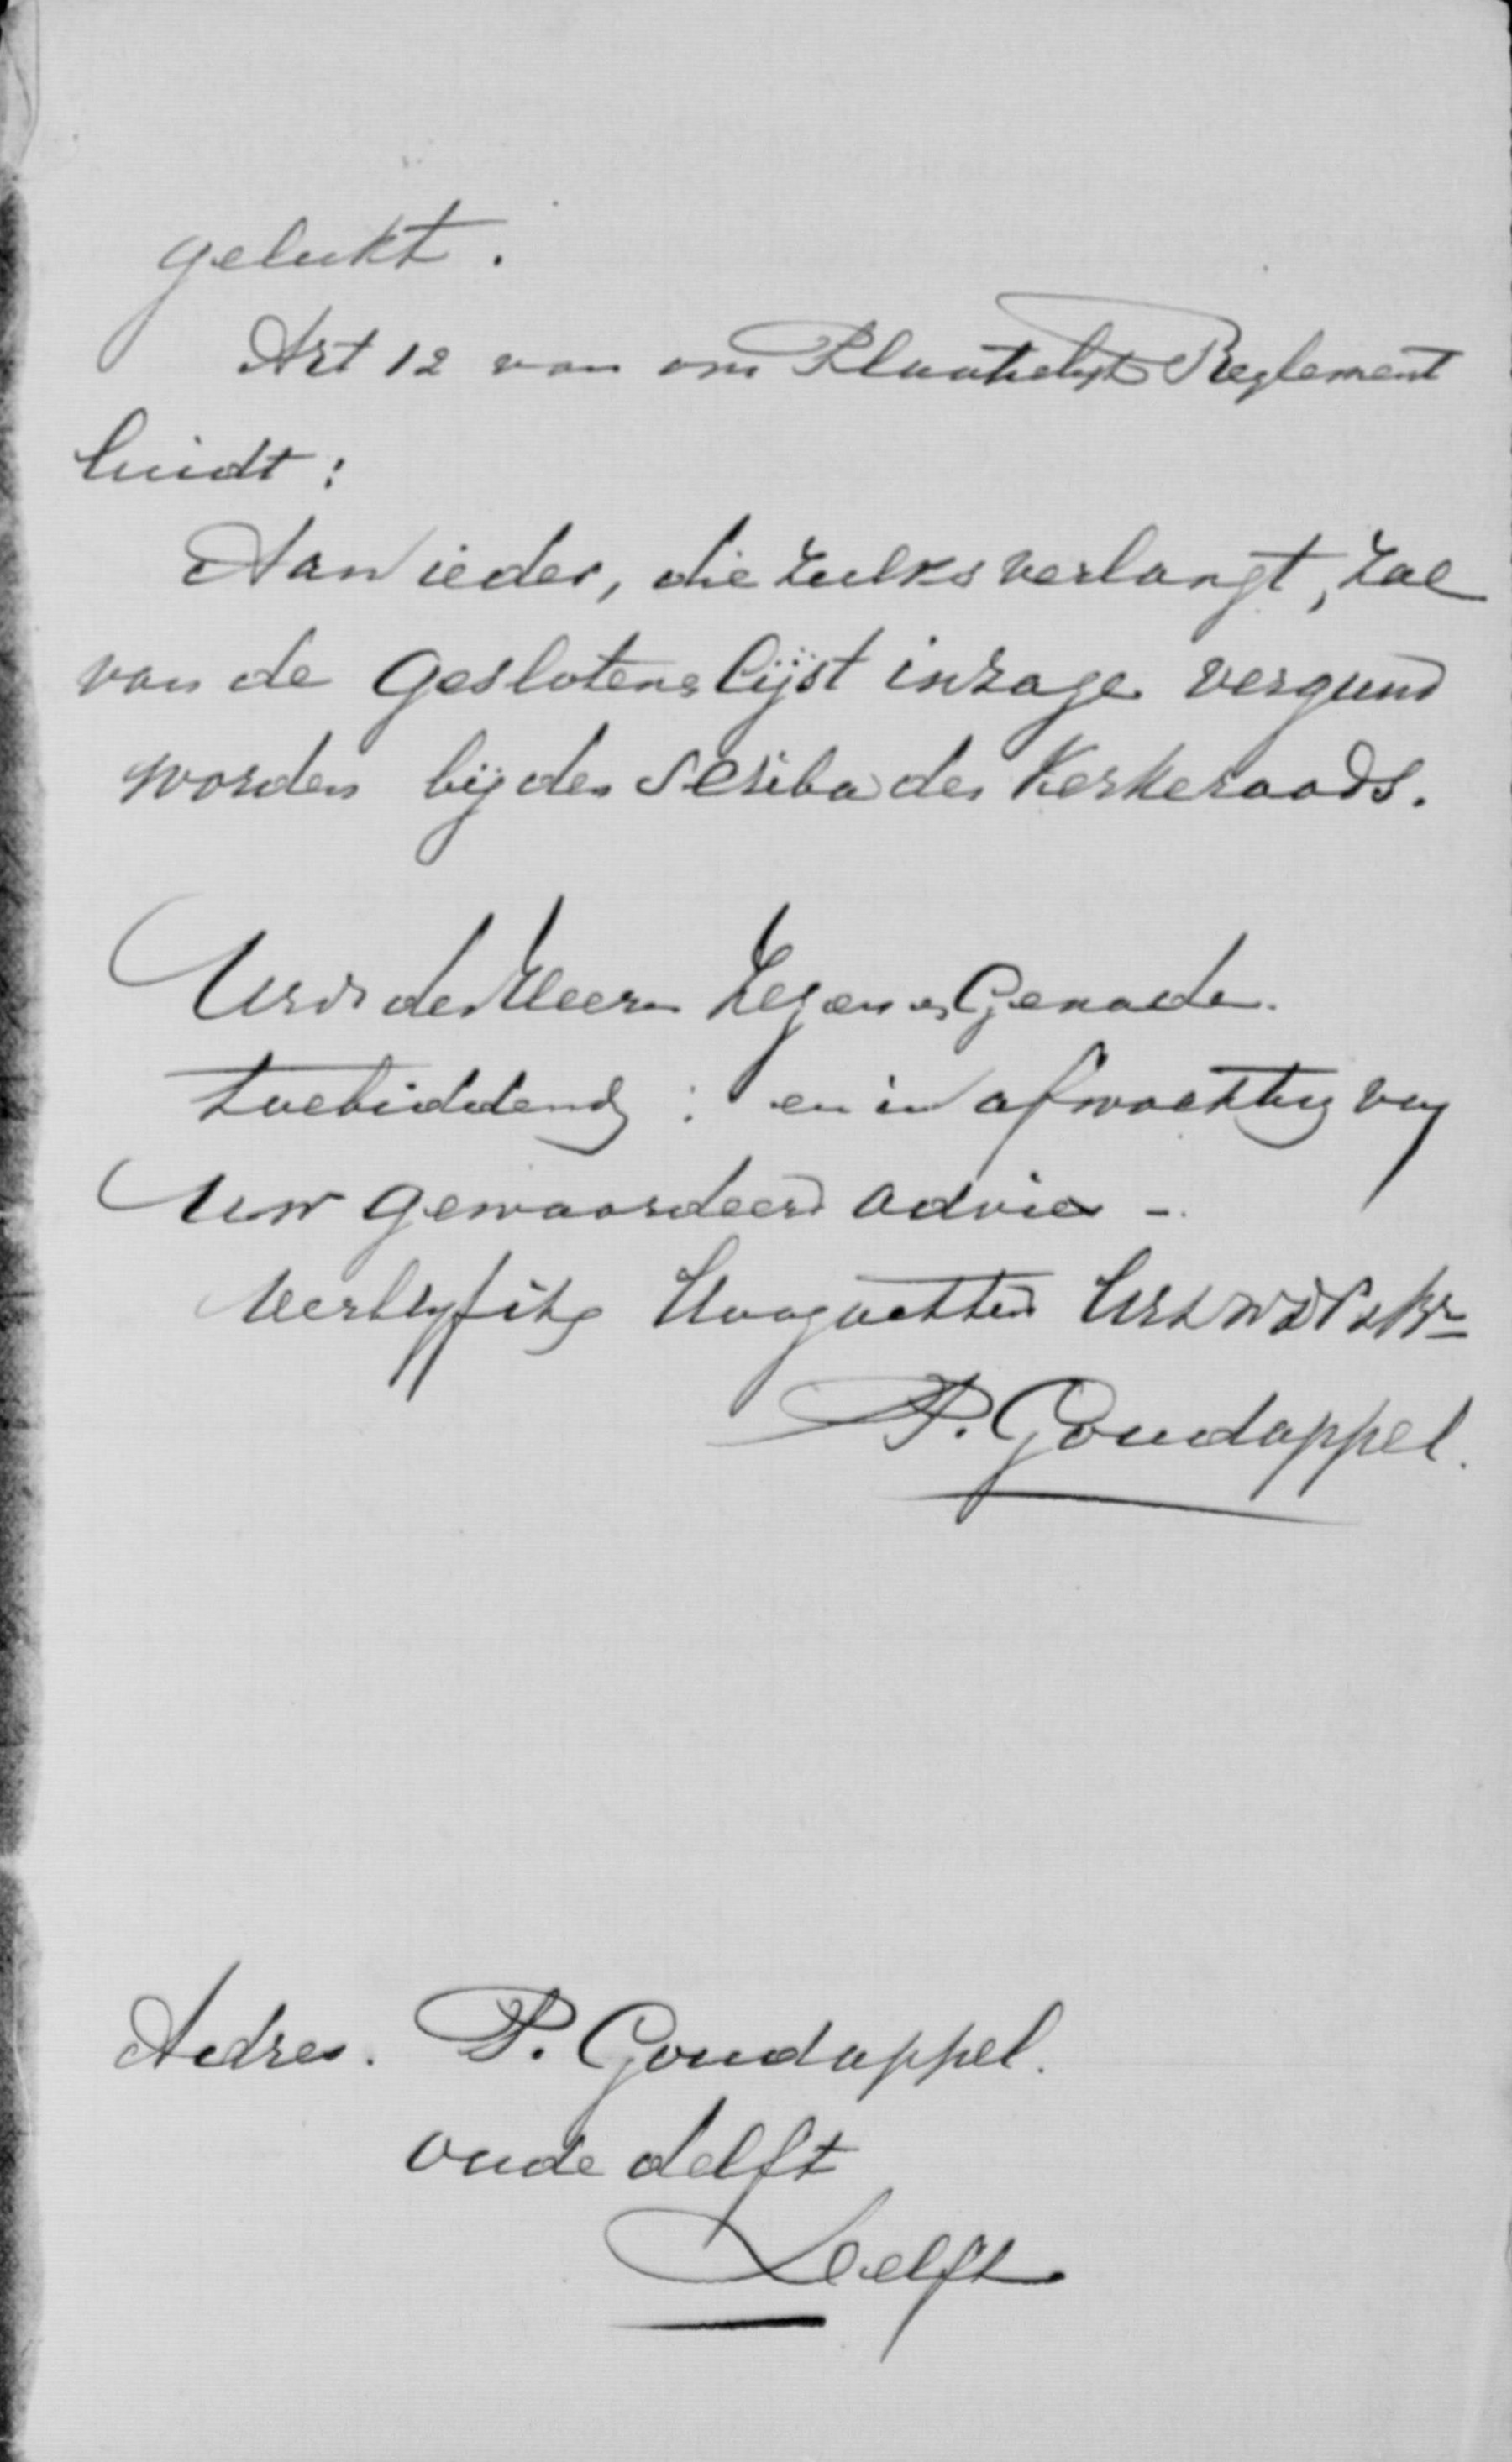 gelukt.
Art 12 van ons Plaatselyk Reglement
luidt:
Aan ieder, die zulks verlangt, zal
van de geslotene lijst inzage vergund
worden bij den scriba des Kerkeraads.
des Heeren Zegen en Genade
toebiddend; en in afwachting van
Uw gewaardeerd advies -.
Verblyf ik Hoogachtend
P. Goudappel.
Adres. P. Goudappel.
oude delft
Delft